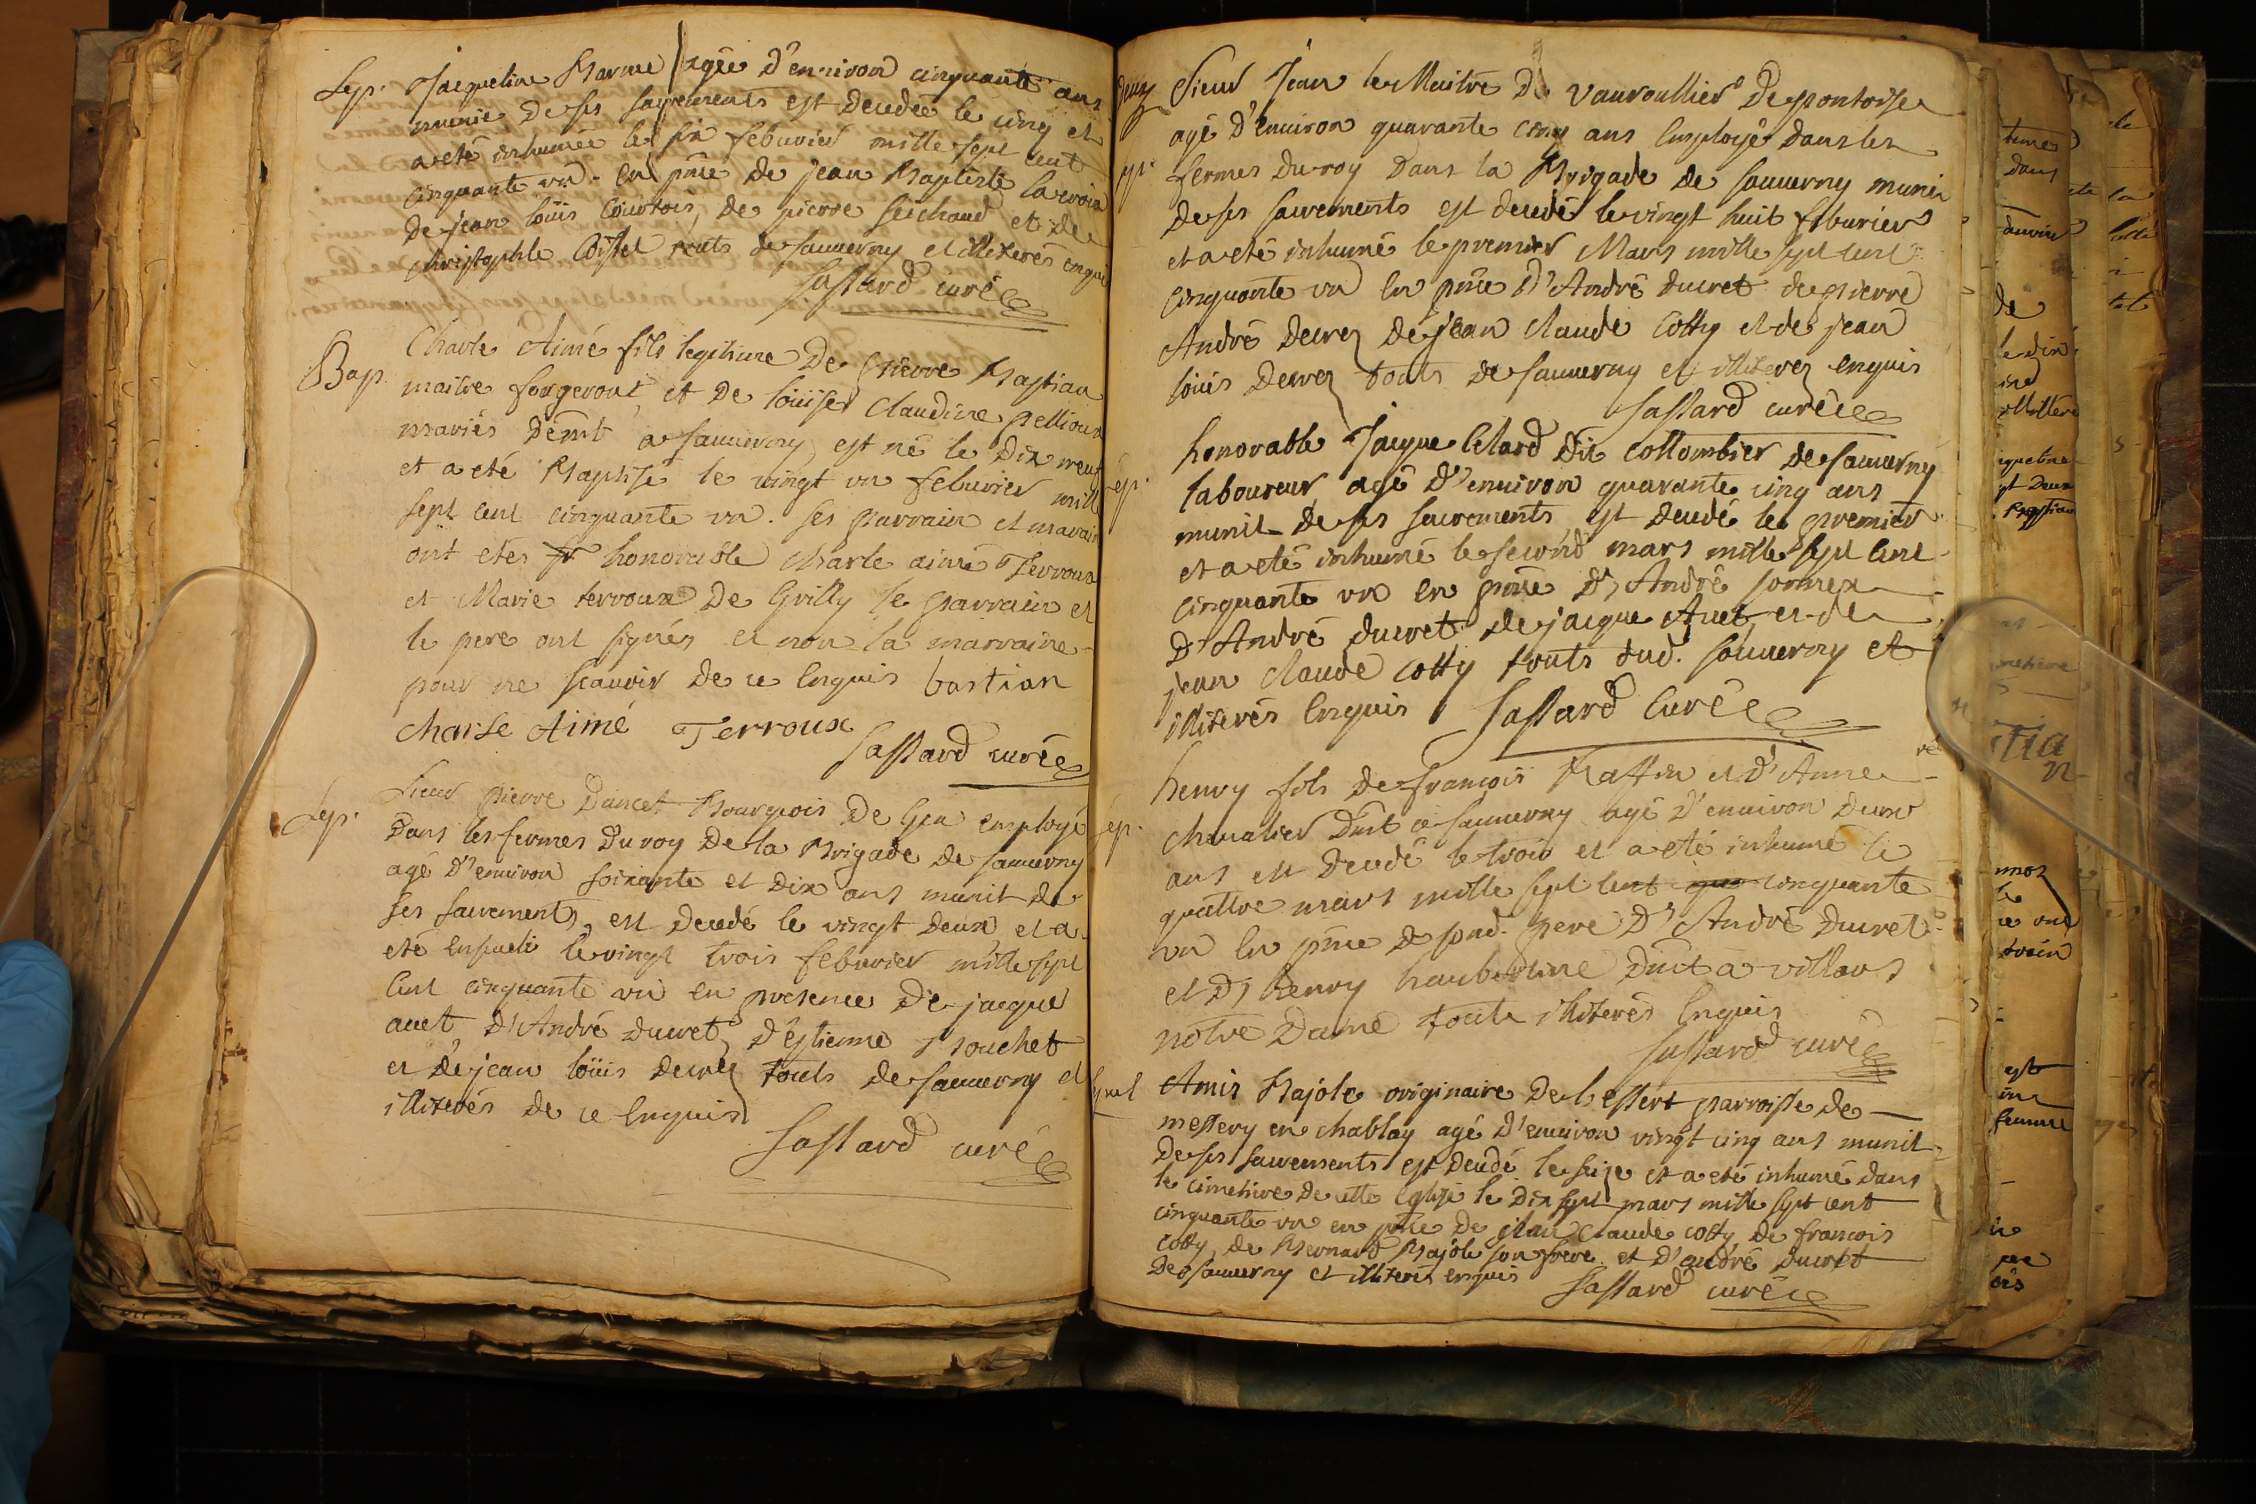 Sep. Jacqueline Barme agée d'environ cinquante ans
munie de ses sacrements est decedée le cinq et
a eté inhumée le six feburier mille sept cent
cinquante un. en pñce de jean Baptiste lacroix
de jean loüis Courtois, de pierre et de
christophle touts de sauverny et illiterés enquis
Sassard curé
Bap. Charle Aimé fils legitime de pierre Bastian
maitre forgeront et de loüise Claudine pellioux
mariés dem̃t a sauverny est né le dix neuf
et a eté Baptisé le vingt un feburier mille
sept cent cinquante un. ses parrain et maraine
ont etés honorable charle aimé Terroux
et Marie terroux de Grilly le parrain et
le pere ont signés et non la marraine
pour ne scavoir de ce Enquis bastian
charle Aimé Terroux
Sassard curé
Sep. Sieur pierre Dancet Bourgeois de Gex employé
dans les fermes du roy de la Brigade de sauverny
agé d'environ soixante et dix ans munit de
ses sacrements, est decedé le vingt deux et a
eté Enseveli le vingt trois feburier mille sept
cent cinquante un en presence de jacque
auet, d'André ducret, d'Estienne Bouchet
et de jean loüis decrez touts de sauverny et
illiterés de ce Enquis
Sassard curé
Sieur Jean le Maitre de vauroullier de pontoise
agé d'environ quarante cinq ans Employé dans les
fermes du roy dans la Brigade de sauverny munit
de ses sacrements est decedé le vingt huit feburier
et a eté inhumé le premier Mars mille sept cent
cinquante un en pñce d'André ducret de pierre
André decrez de jean claude Cotty et de jean
loüis decrez touts de sauverny et illiterez enquis
Sassard curé
ep. honorable Jacque Clard dit Collombier de sauverny
laboureur agé d'environ quarante cinq ans
munit de ses sacrements est decedé le premier
et a eté inhumé le second mars mille sept cent
cinquante un en pñce d'André
d'André ducret de jacque Auet et de
jean claude Cotty touts dud. sauverny et
illiterés Enquis Sassard Curé
ep. henry fils de françois et d'Anne
chevalier dem̃t a sauverny agé d'environ deux
ans est decedé le trois et a eté inhumé le
quattre mars mille sept cent cinquante
un en pñce de pred. pere d'André Ducret
et d'henry dem̃t a villars
notre Dame touts illiterés Enquis
Sassard curé
Amis Bajole originaire de Lessert parroisse de
messery en chablay agé d'environ vingt cinq ans munit
de ses sacrements est decedé le seize et a eté inhumé dans
le cimetiere de cette Eglise le dix sept mars mille sept cent
cinquante un en pñce de jean Claude cotty, de francois
cotty, de Bernard Bajole son frere et d'andré ducret
de sauverny et illiterés enquis Sassard curé